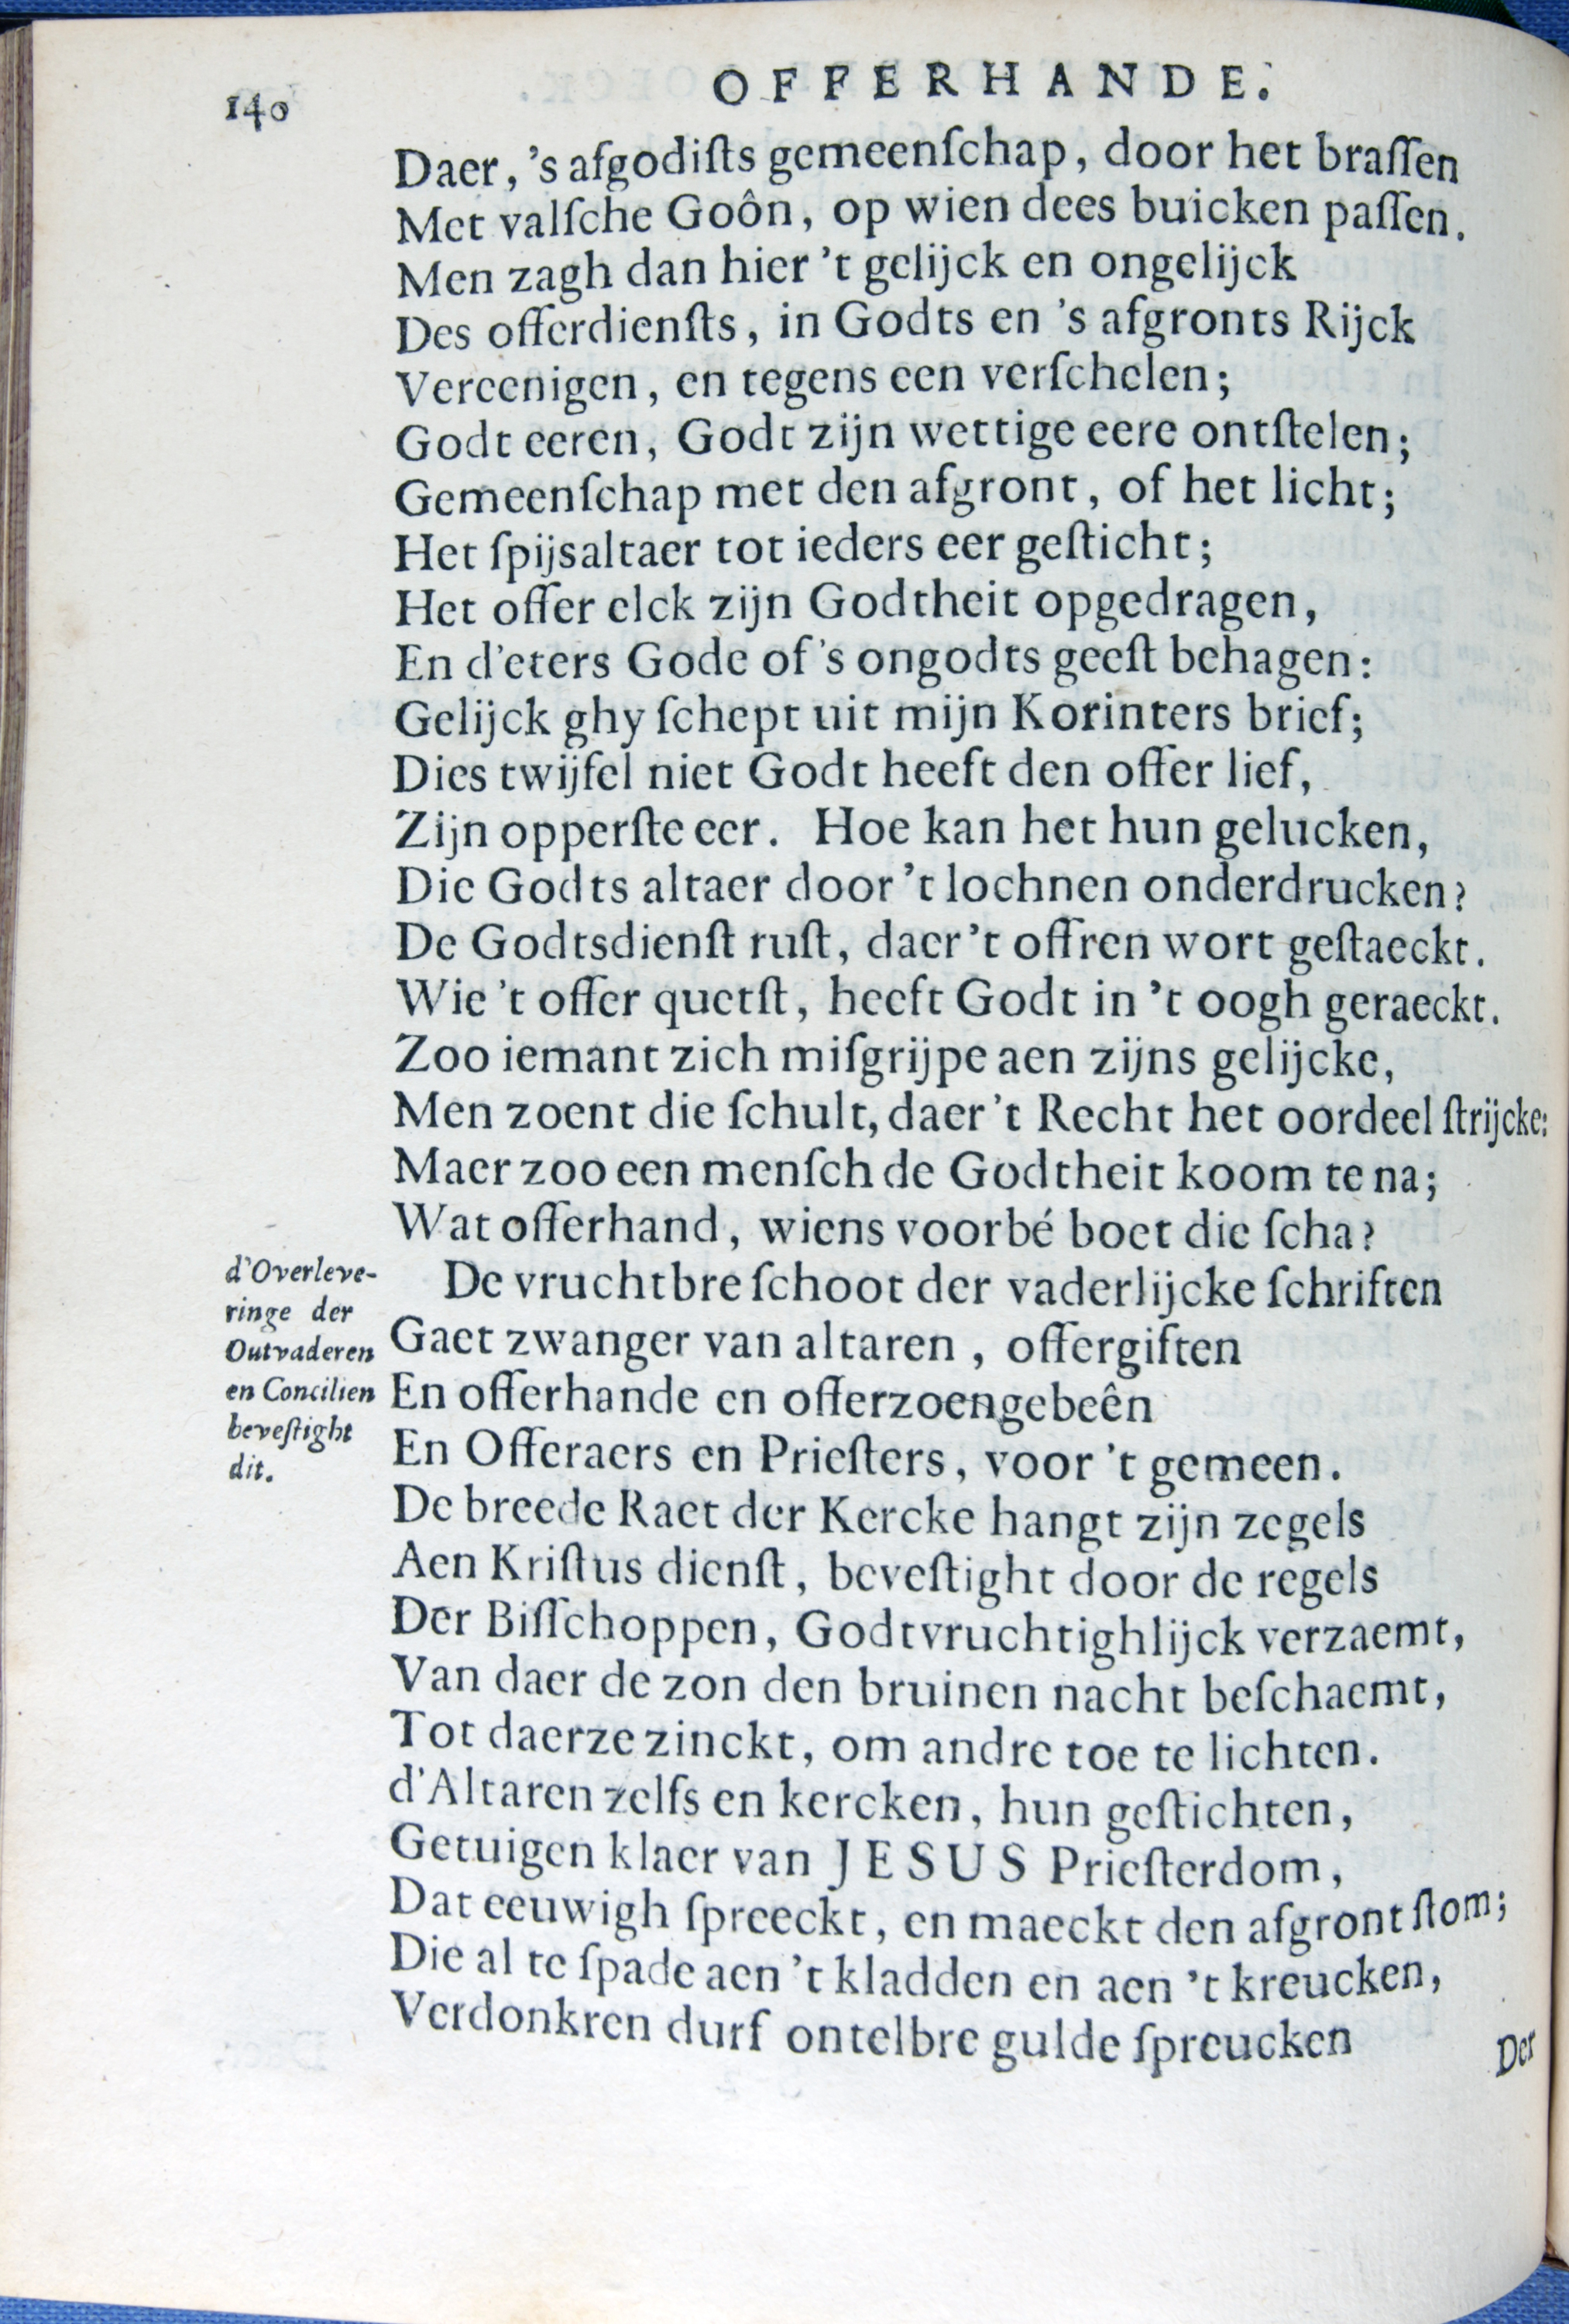 140
OFFERHANDE.
Daer, 's afgodiſts gemeenſchap, door het braſſen
Met valſche Goôn, op wien dees buicken paſſen.
Men zagh dan hier 't gelijck en ongelijck
Des offerdienſts, in Godts en 's afgronts Rijck
Vereenigen, en tegens een verſchelen;
Godt eeren, Godt zijn wettige eere ontſtelen;
Gemeenſchap met den afgront, of het licht;
Het ſpijsaltaer tot ieders eer geſticht;
Het offer elck zijn Godtheit opgedragen,
En d'eters Gode of 's ongodts geeſt behagen:
Gelijck ghy ſchept uit mijn Korinters brief;
Dies twijfel niet Godt heeft den offer lief,
Zijn opperſte eer. Hoe kan het hun gelucken,
Die Godts altaer door 't lochnen onderdrucken?
De Godtsdienſt ruſt, daer 't offren wort geſtaeckt.
Wie 't offer quetſt, heeft Godt in 't oogh geraeckt.
Zoo iemant zich miſgrijpe aen zijns gelijcke,
Men zoent die ſchult, daer 't Recht het oordeel ſtrijcke:
Maer zoo een menſch de Godtheit koom te na;
Wat offerhand, wiens voorbé boet die ſcha?
d'Overleve-
ringe der
Outvaderen
en Concilien
beveſtight
dit.
De vruchtbre ſchoot der vaderlijcke ſchriften
Gaet zwanger van altaren, offergiften
En offerhande en offerzoengebeên
En Offeraers en Prieſters, voor 't gemeen.
De breede Raet der Kercke hangt zijn zegels
Aen Kriſtus dienſt, beveſtight door de regels
Der Biſſchoppen, Godtvruchtighlijck verzaemt,
Van daer de zon den bruinen nacht beſchaemt,
Tot daerze zinckt, om andre toe te lichten.
d'Altaren zelfs en kercken, hun geſtichten,
Getuigen klaer van JESUS Prieſterdom,
Dat eeuwigh ſpreeckt, en maeckt den afgront ſtom;
Die al te ſpade aen 't kladden en aen 't kreucken,
Verdonkren durf ontelbre gulde ſpreucken
Der